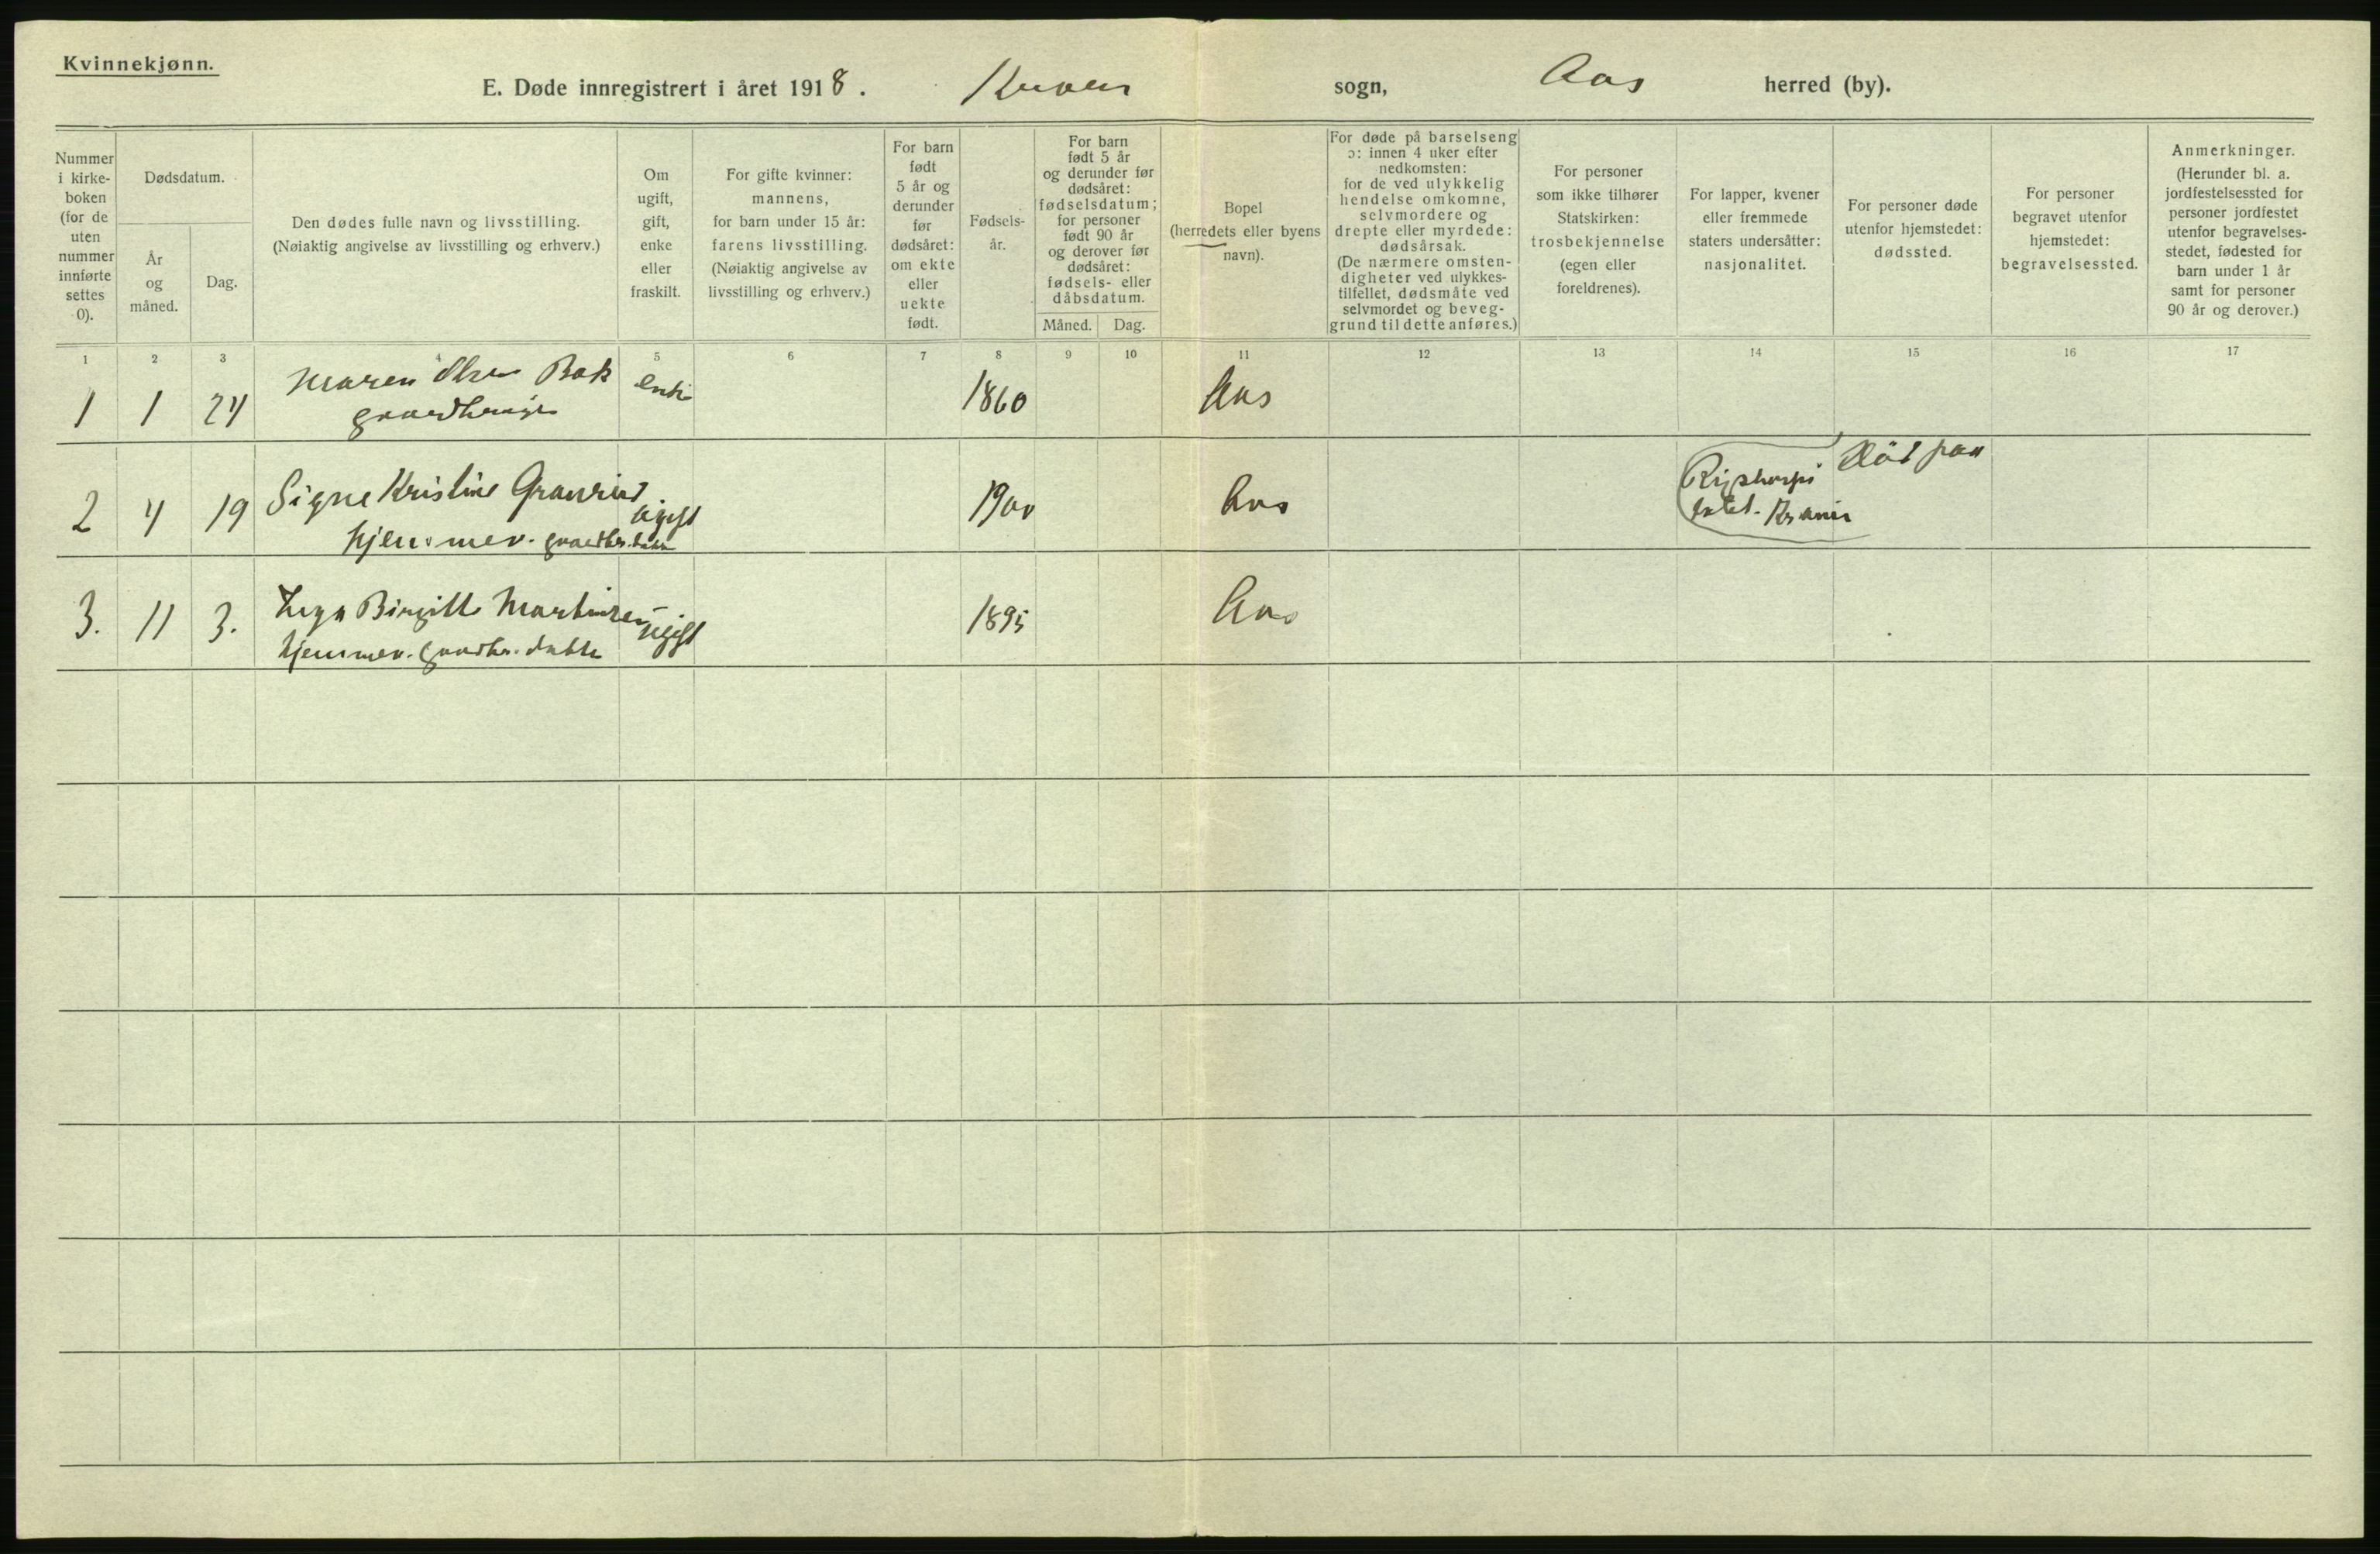 Kvinnekjønn.
E. Døde innregistrert i året 1918. sogn, Aas herred (by).
Nummer i kirke-boken (for de uten nummer innførte settes 0).
Dødsdatum.
År og måned.
Dag.
Den dødes fulle navn og livsstilling.
(Nøiaktig angivelse av livsstilling og erhverv.)
Om ugift, gift, enke eller fraskilt.
For gifte kvinner: mannens, for barn under 15 år: farens livsstilling. (Nøiaktig angivelse av livsstilling og erhverv.)
For barn født 5 år og derunder før dødsåret: om ekte eller uekte født.
Fødsels-år.
For barn født 5 år og derunder før dødsåret: fødselsdatum; for personer født 90 år og derover før dødsåret: fødsels- eller dåbsdatum.
Måned. Dag.
Bopel (herredets eller byens navn).
For døde på barselseng ɔ: innen 4 uker efter nedkomsten: for de ved ulykkelig hendelse omkomne, selvmordere og drepte eller myrdede: dødsårsak. (De nærmere omsten-digheter ved ulykkes-tilfellet, dødsmåte ved selvmordet og beveg-grund til dette anføres.)
For personer som ikke tilhører Statskirken: trosbekjennelse (egen eller foreldrenes).
For lapper, kvener eller fremmede staters undersåtter: nasjonalitet.
For personer døde utenfor hjemstedet: dødssted.
For personer begravet utenfor hjemstedet: begravelsessted.
Anmerkninger. (Herunder bl. a. jordfestelsessted for personer jordfestet utenfor begravelses-stedet, fødested for barn under 1 år samt for personer 90 år og derover.)
1 2 3 4 5 6 7 8 9 10 11 12 13 14 15 16 17
1 1 24 Maren Olsen Bak enke 1860 Aas
2 4 19 Signe Kristine ugift 1900 Aas Död paa
hjemmev. gaardbr. datter
3. 11 3. Birgitte Martinsen ugift 1895 Aas
hjemmev. gaardbr. datter